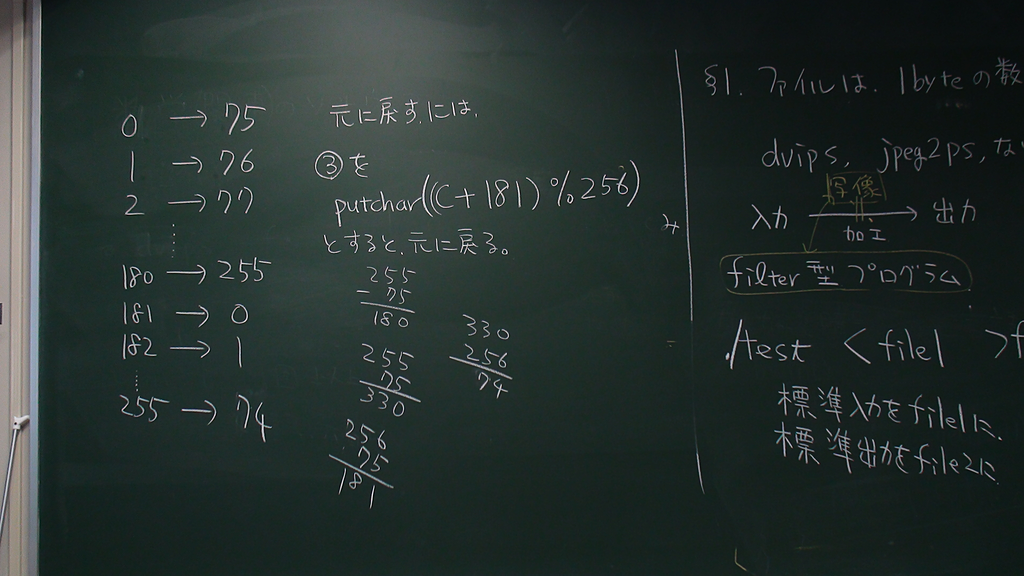 0 → 75
1 → 76
2 → 77
⋮
180 → 255
181 → 0
182 → 1
⋮
255 → 74
元に戻す,には,
③を
putchar((C+181)%256)
とすると,元に戻る。
255
- 75
180
255
75
330
256
75
181
330
256
74
み
§1. ファイルは, 1byteの数
dvips, jpeg2ps, な
入力 → 出力
加工
filter型プログラム
./test < file1 > f
標準入力をfile1に,
標準出力をfile2に